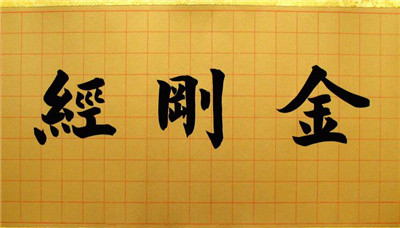 金剛經